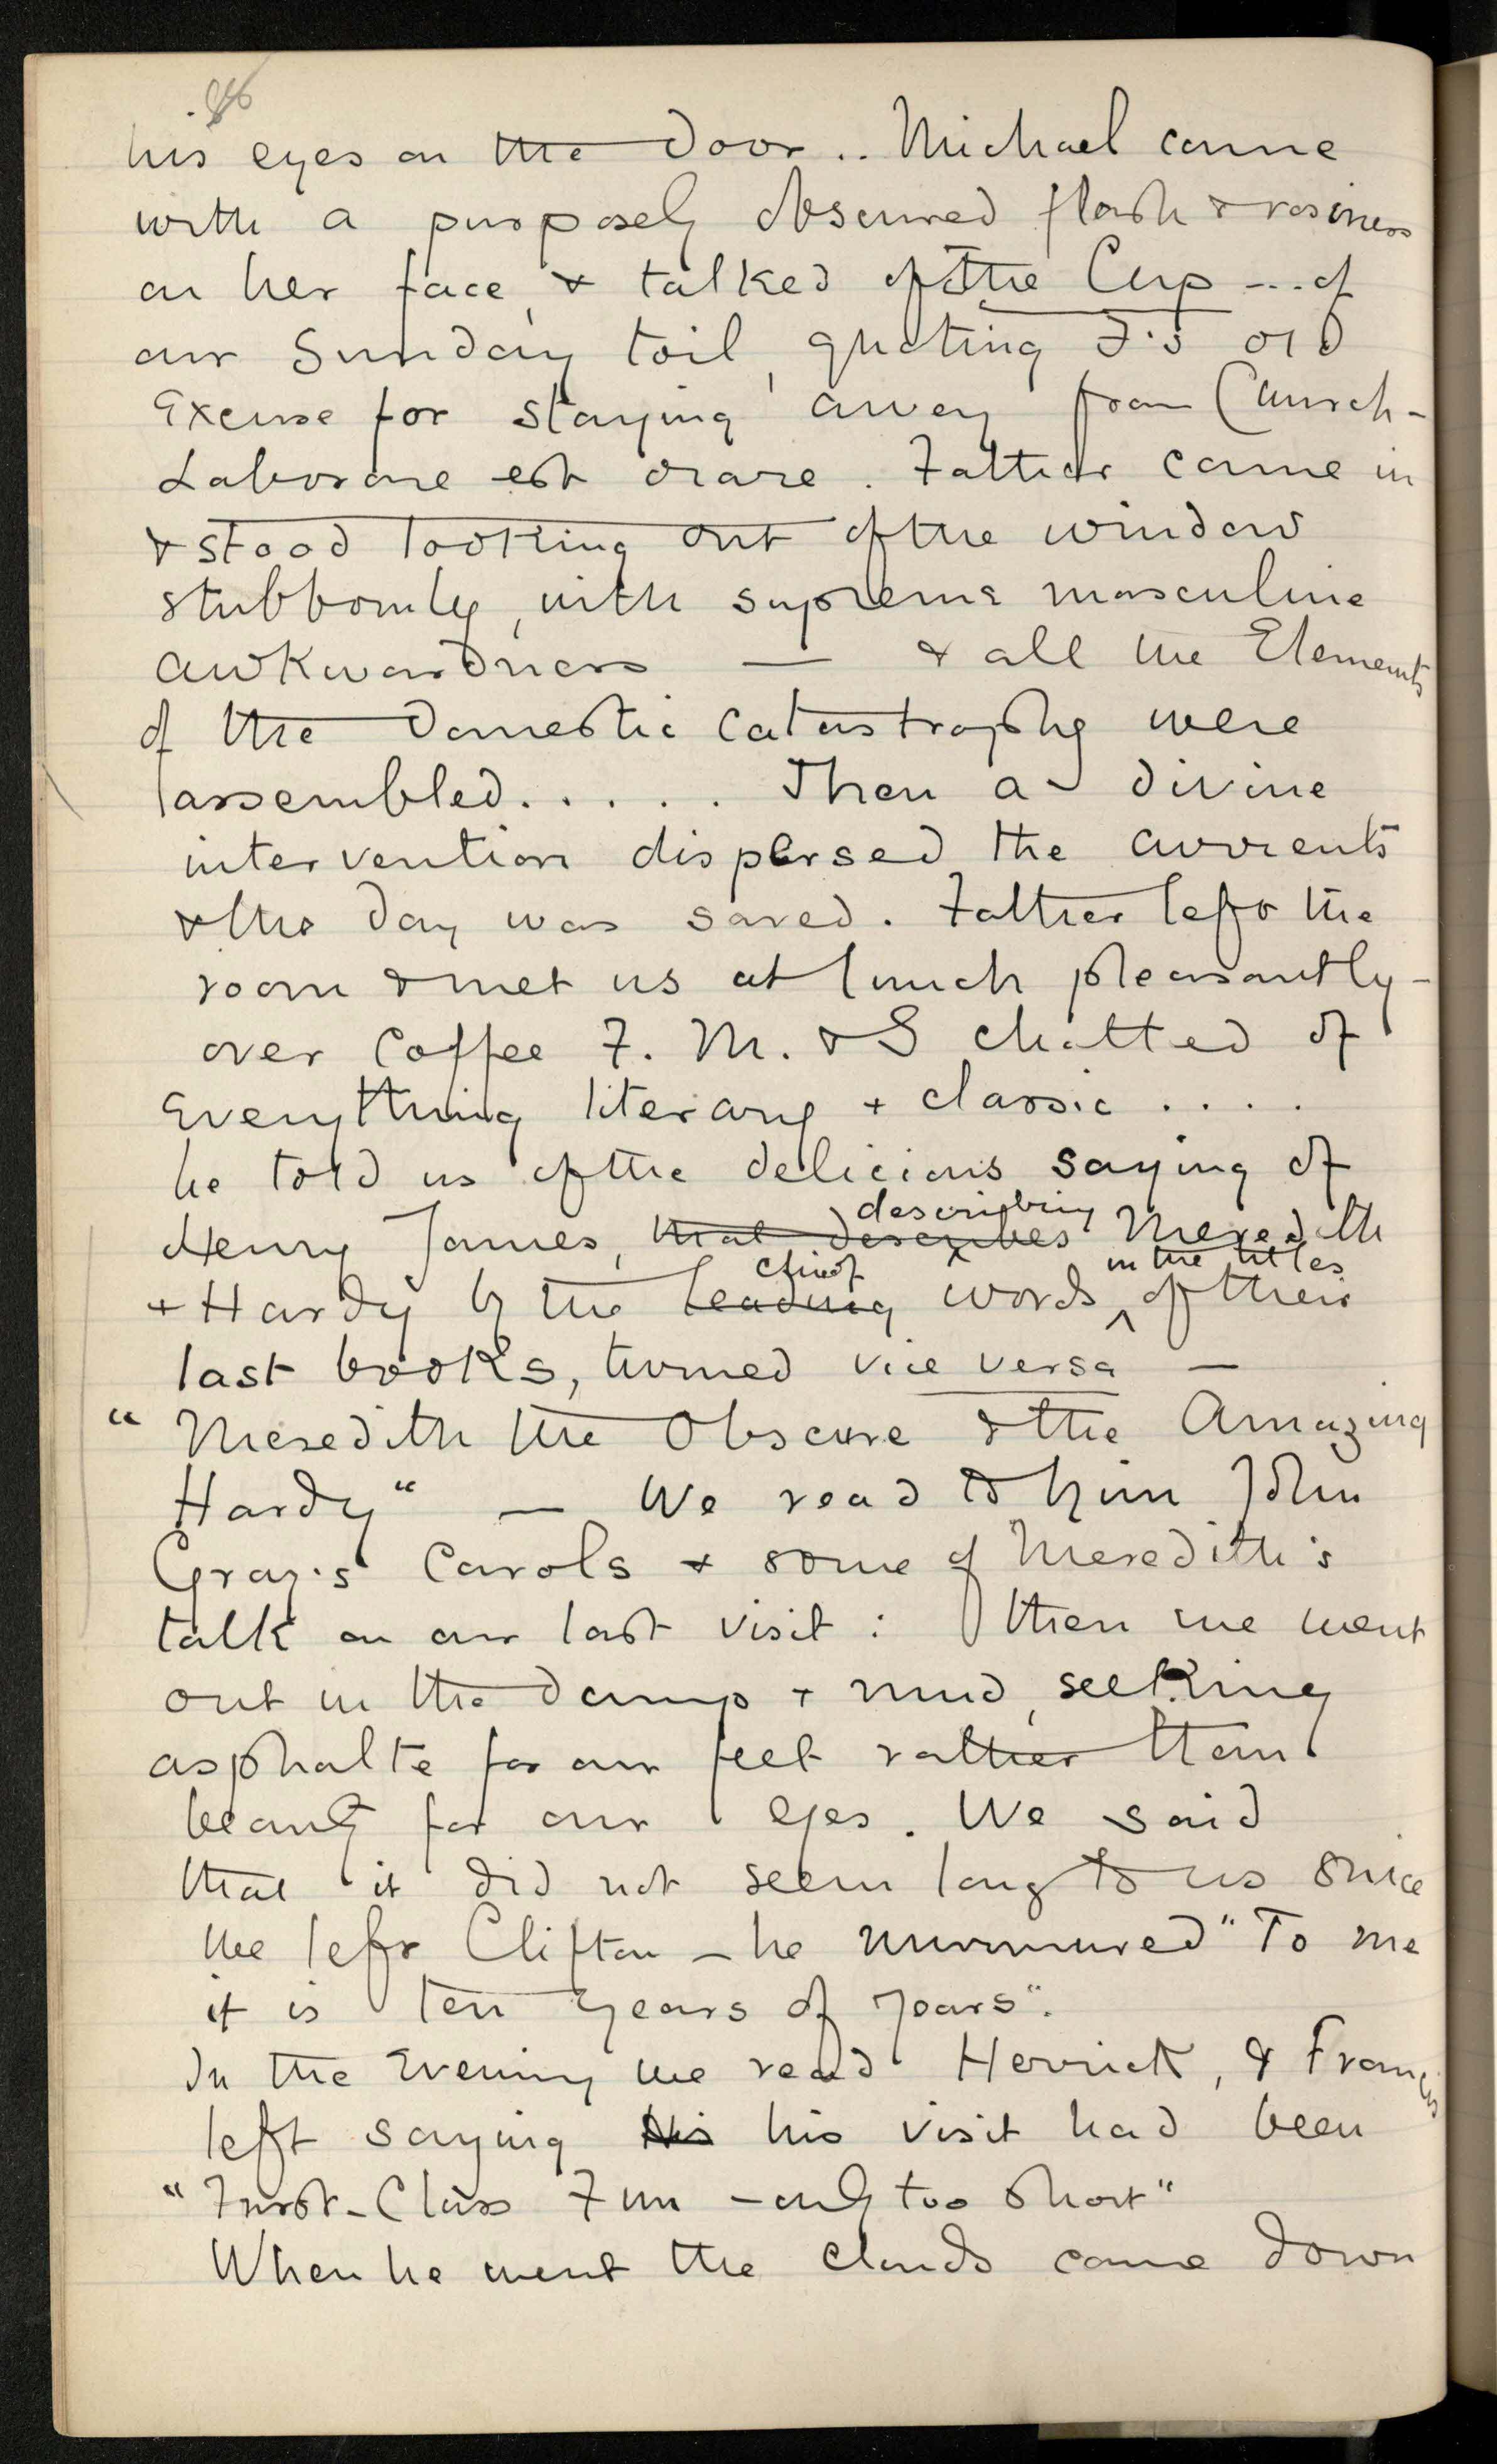 his eyes on the door .. Michael came
with a purposely obscured flash & rosiness
on her face, & talked of the Cup --- of
our Sunday toil, quoting F's old
Excuse for staying away from Church -
Laborare est orare. Father came in
& stood looking out of the window
stubbornly, with supreme masculine
awkwardness — & all the Elements
of the domestic catastrophe were
assembled. . . . . . Then a divine
intervention dispersed the currents
& the day was saved. Father left the
room & met us at lunch pleasantly -
over coffee F. M. & S chatted of
Everything literary + classic . . . .
he told us of the delicious saying of
Henry James, that describes describing Meredith
+ Hardy by the leading chief words in the titles of their
last books, turned vice versa —
“Meredith the Obscure & the Amazing
Hardy“ — We read to him John
Gray's Carols & some of Meredith's
talk on our last visit : then we went
out in the damp + mud, seeking
asphalte for our feet rather than
beauty for our eyes. We said
that it did not seem long to us since
we left Clifton – he murmured "To me
it is ten years of years".
In the Evening we read Herrick, & Francis
left saying his his visit had been
“First-Class Fun – only too short"
When he went the clouds came down